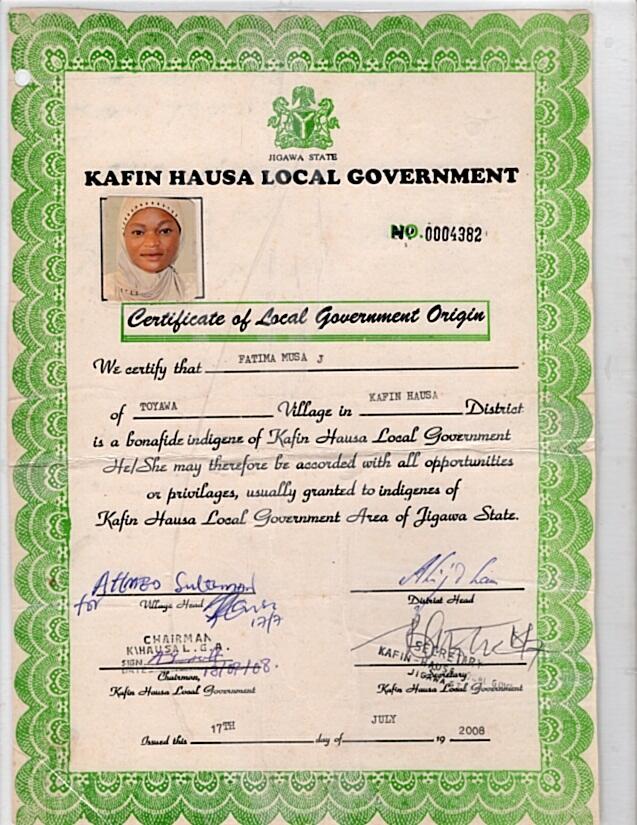 JIGAWA STATE
KAFIN HAUSA LOCAL GOVERNMENT
NO. 0004382
Certificate of Local Government Origin
We certify that FATIMA MUSA J
of TOYAWA Village in KAFIN HAUSA District
is a bonafide indigene of Kafin Hausa Local Government
He/She may therefore be accorded with all opportunities
or privilages, usually granted to indigenes of
Kafin Hausa Local Government Area of Jigawa State.
for
Village Head
17/7
District Head
CHAIRMAN
K/HAUSA L.G.A.
SIGN
DATE
Chairman,
Kafin Hausa Local Government
SECRETARY
KAFIN-HAUSA
JIGAWA
Secretary
Kafin Hausa Local Government
Issued this 17TH day of JULY 19 2008